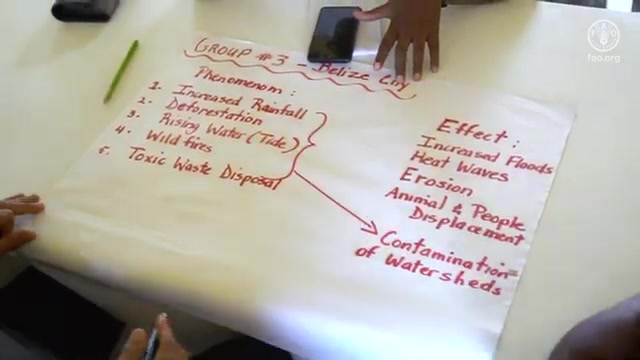 GROUP #3 - Belize City
Phenomenom:
1. Increased Rainfall
2. Deforestation
3. Rising Water (Tide)
4. Wild fires
5. Toxic Waste Disposal
Effect:
Increased Floods
Heat Waves
Erosion
Animal & People
Displacement
Contamination
of Watersheds
FAO
fao.org